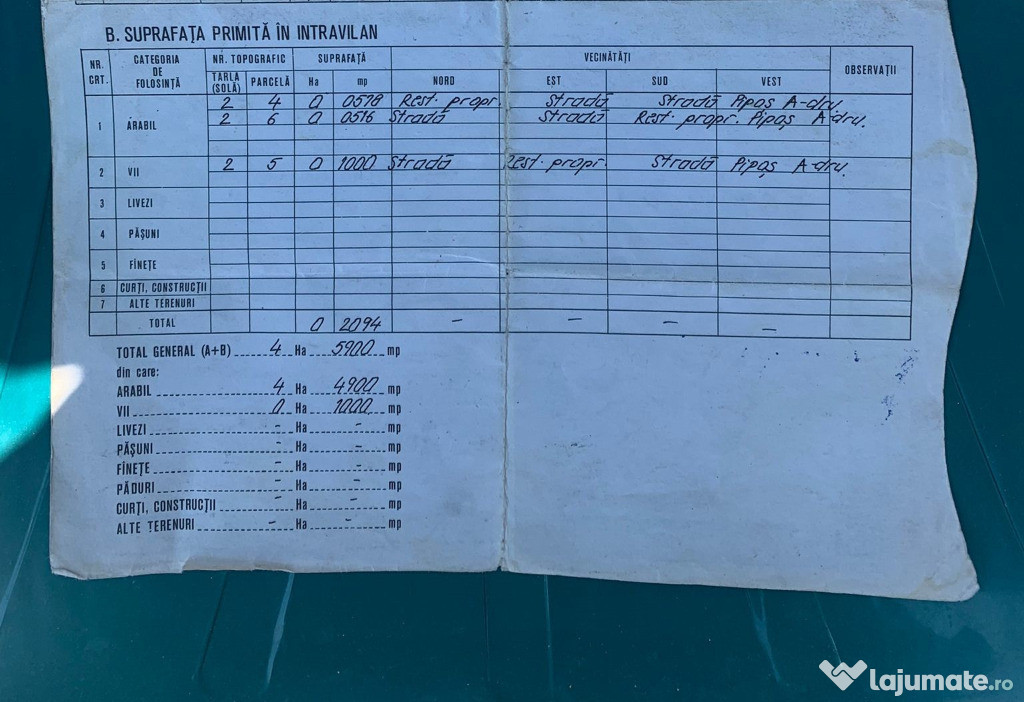 B. SUPRAFAȚA PRIMITĂ ÎN INTRAVILAN
NR. CRT. CATEGORIA DE FOLOSINȚĂ NR. TOPOGRAFIC SUPRAFAȚĂ VECINĂTĂȚI OBSERVAȚII
TARLA (SOLĂ) PARCELĂ Ha mp NORD EST SUD VEST
1 ARABIL 2 4 0 0578 Rest. propr. Stradă Stradă Pipaș A-dru.
2 6 0 0516 Stradă Stradă Rest. propr. Pipaș A-dru.
2 VII 2 5 0 1000 Stradă Rest. propr. Stradă Pipaș A-dru.
3 LIVEZI
4 PĂȘUNI
5 FÎNEȚE
6 CURȚI, CONSTRUCȚII
7 ALTE TERENURI
TOTAL 0 2094 – – – –
TOTAL GENERAL (A+B) 4 Ha 5900 mp
din care:
ARABIL 4 Ha 4900 mp
VII 0 Ha 1000 mp
LIVEZI - Ha - mp
PĂȘUNI - Ha - mp
FÎNEȚE - Ha - mp
PĂDURI - Ha - mp
CURȚI, CONSTRUCȚII - Ha - mp
ALTE TERENURI - Ha - mp
lajumate.ro